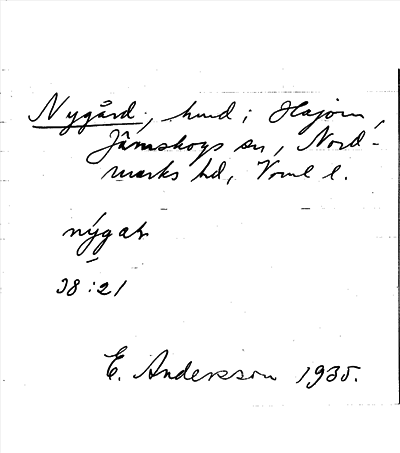 Nygård, hmd i Hajom,
Järnskogs sn, Nord-
marks hd, Vrml l.
nýgaṇ
38:21
E. Andersson 1935.